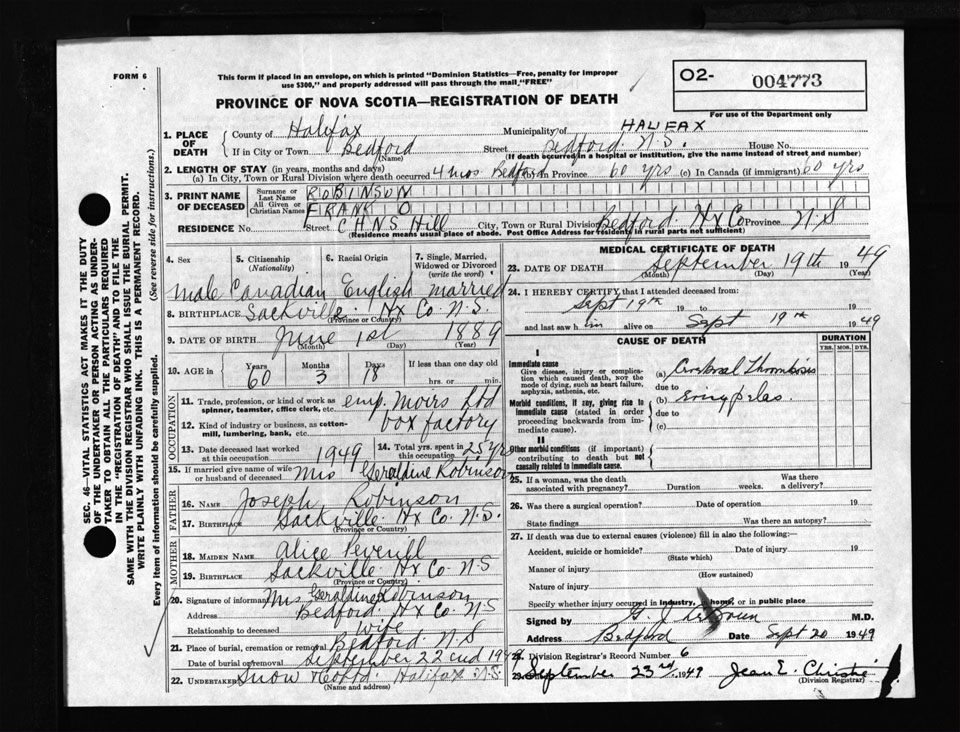 FORM 6
This form if placed in an envelope, on which is printed "Dominion Statistics—Free, penalty for improper
use $300," and properly addressed will pass through the mail "FREE"
O2- 004773
For use of the Department only
PROVINCE OF NOVA SCOTIA—REGISTRATION OF DEATH
1. PLACE OF DEATH
County of Halifax Municipality of HALIFAX
If in City or Town Bedford Street Bedford. N.S. House No.
(Name) (If death occurred in a hospital or institution, give the name instead of street and number)
2. LENGTH OF STAY (in years, months and days)
(a) In City, Town or Rural Division where death occurred 4 mos Bedford In Province 60 yrs (c) In Canada (if immigrant) 60 yrs
3. PRINT NAME OF DECEASED
Surname or Last Name ROBINSON
All Given or Christian Names FRANK O
RESIDENCE No. Street CHNS Hill City, Town or Rural Division Bedford. Hx Co Province N.S
(Residence means usual place of abode. Post Office Address for residents in rural parts not sufficient)
4. Sex 5. Citizenship (Nationality) 6. Racial Origin 7. Single, Married, Widowed or Divorced (write the word)
male Canadian English married
8. BIRTHPLACE Sackville. Hx Co. N.S.
(Province or Country)
9. DATE OF BIRTH June 1st 1889
(Month) (Day) (Year)
10. AGE in Years Months Days If less than one day old
60 3 18 hrs. or min.
OCCUPATION
11. Trade, profession, or kind of work as spinner, teamster, office clerk, etc. emp. Moirs Ltd
12. Kind of industry or business, as cotton-mill, lumbering, bank, etc. box factory
13. Date deceased last worked at this occupation 1949 14. Total yrs. spent in this occupation 25 yrs
15. If married give name of wife or husband of deceased Mrs Geraldine Robinson
FATHER
16. NAME Joseph Robinson
17. BIRTHPLACE Sackville. Hx Co. N.S.
(Province or Country)
MOTHER
18. MAIDEN NAME Alice Peverill
19. BIRTHPLACE Sackville Hx Co. N.S
(Province or Country)
20. Signature of informant Mrs Geraldine Robinson
Address Bedford. Hx Co NS
Relationship to deceased wife
21. Place of burial, cremation or removal Bedford. N.S
Date of burial or removal September 22 nd 19
22. Undertaker Snow Halifax N.S.
(Name and address)
MEDICAL CERTIFICATE OF DEATH
23. DATE OF DEATH September 19th 1949
(Month) (Day) (Year)
24. I HEREBY CERTIFY, that I attended deceased from:
Sept 19th 19 to 19
and last saw him alive on Sept 19th 1949
CAUSE OF DEATH
DURATION
YRS. MOS. DYS.
I
Immediate cause
Give disease, injury or complication which caused death, NOT the mode of dying, such as heart failure, asphyxia, asthenia, etc.
(a) Cerebral Thrombosis
due to
Morbid conditions, if any, giving rise to immediate cause (stated in order proceeding backwards from immediate cause).
(b) Erysipelas.
due to
(c)
II
Other morbid conditions (if important) contributing to death but not causally related to immediate cause.
25. If a woman, was the death associated with pregnancy? Duration weeks. Was there a delivery?
26. Was there a surgical operation? Date of operation 19
State findings Was there an autopsy?
27. If death was due to external causes (violence) fill in also the following:—
Accident, suicide or homicide? Date of injury 19
(State which)
Manner of injury
(How sustained)
Nature of injury
Specify whether injury occurred in industry, in home, or in public place
Signed by G. J. M.D.
Address Bedford Date Sept 20 1949
28. Division Registrar's Record Number 6
29. September 23rd 1949 Jean E. Christie
(Division Registrar)
SEC. 46—VITAL STATISTICS ACT MAKES IT THE DUTY
OF THE UNDERTAKER OR PERSON ACTING AS UNDER-
TAKER TO OBTAIN ALL THE PARTICULARS REQUIRED
IN THE "REGISTRATION OF DEATH" AND TO FILE THE
SAME WITH THE DIVISION REGISTRAR WHO SHALL ISSUE THE BURIAL PERMIT.
WRITE PLAINLY WITH UNFADING INK. THIS IS A PERMANENT RECORD.
Every item of information should be carefully supplied. (See reverse side for instructions.)